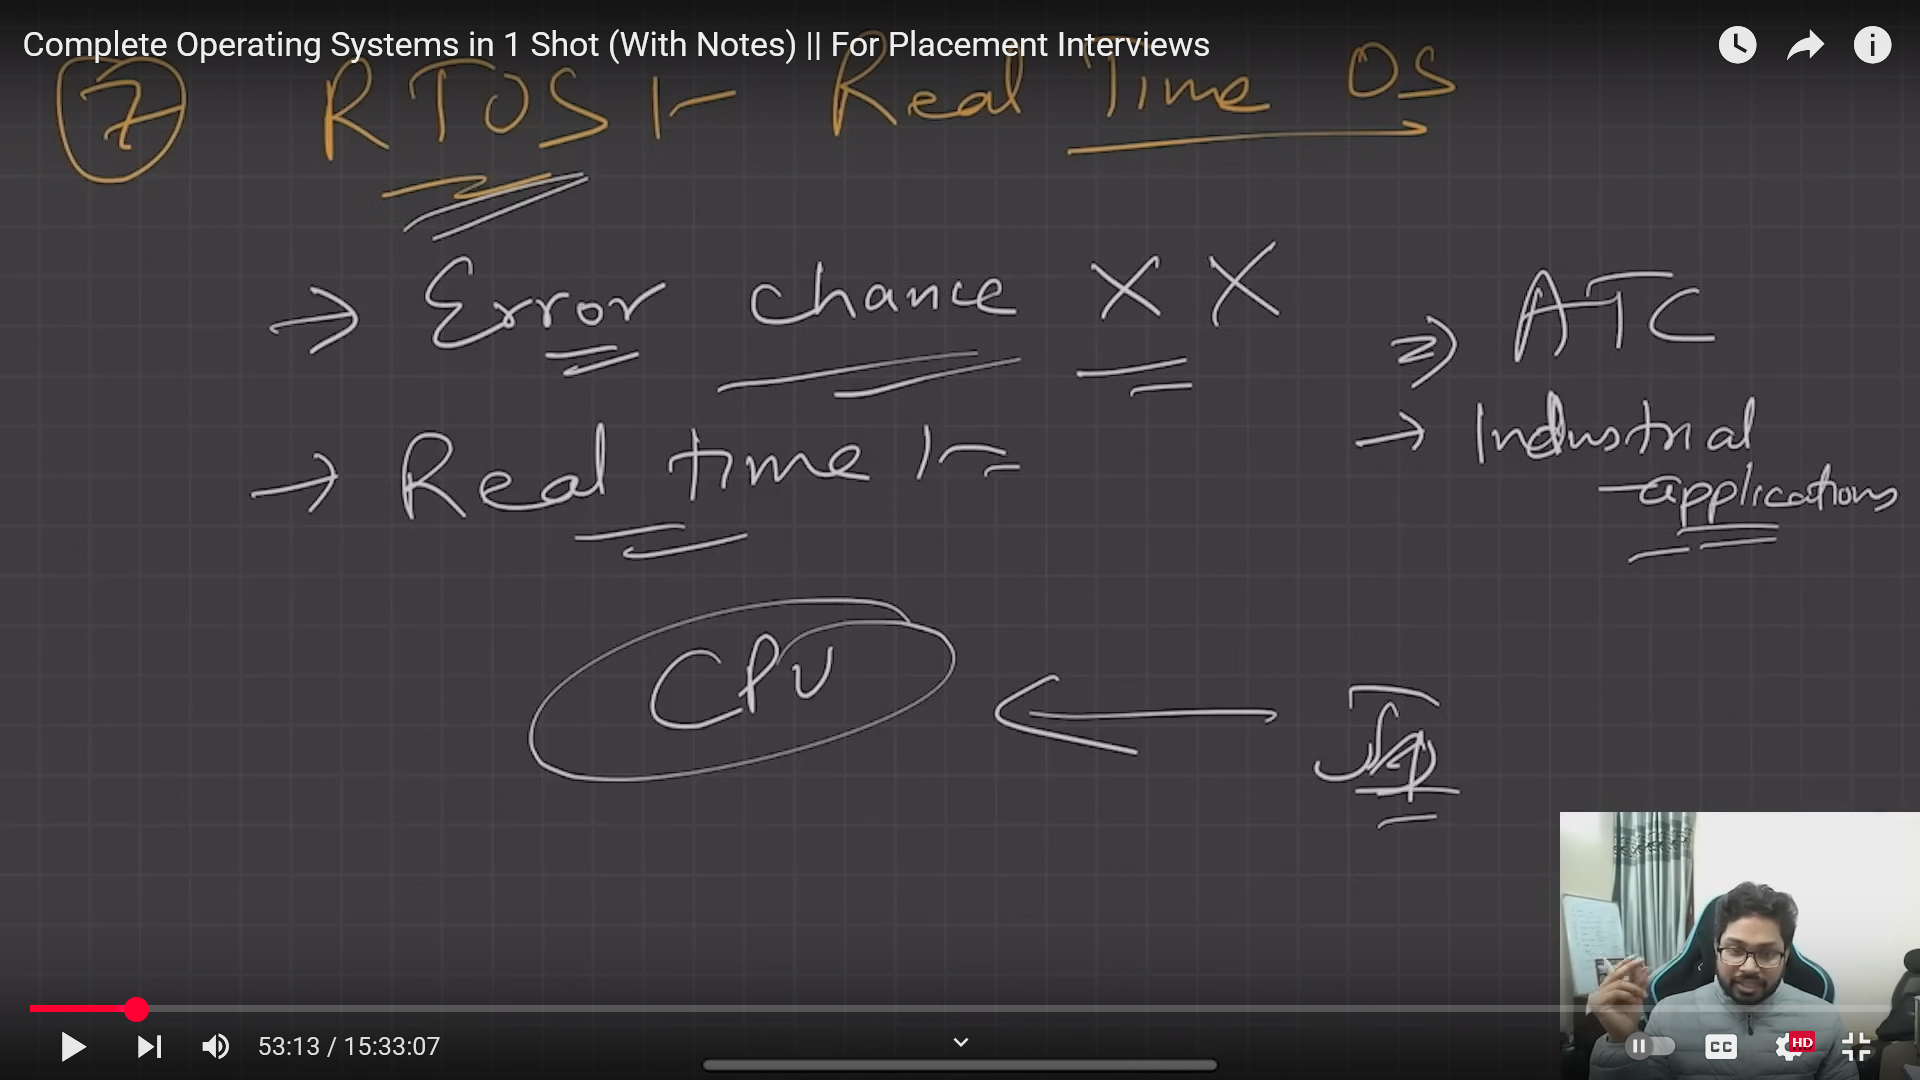 Complete Operating Systems in 1 Shot (With Notes) || For Placement Interviews
7 RTOS :- Real Time OS
→ Error chance X X
⇒ ATC
→ Industrial
applications
→ Real time :-
CPU ←
53:13 / 15:33:07
CC
HD